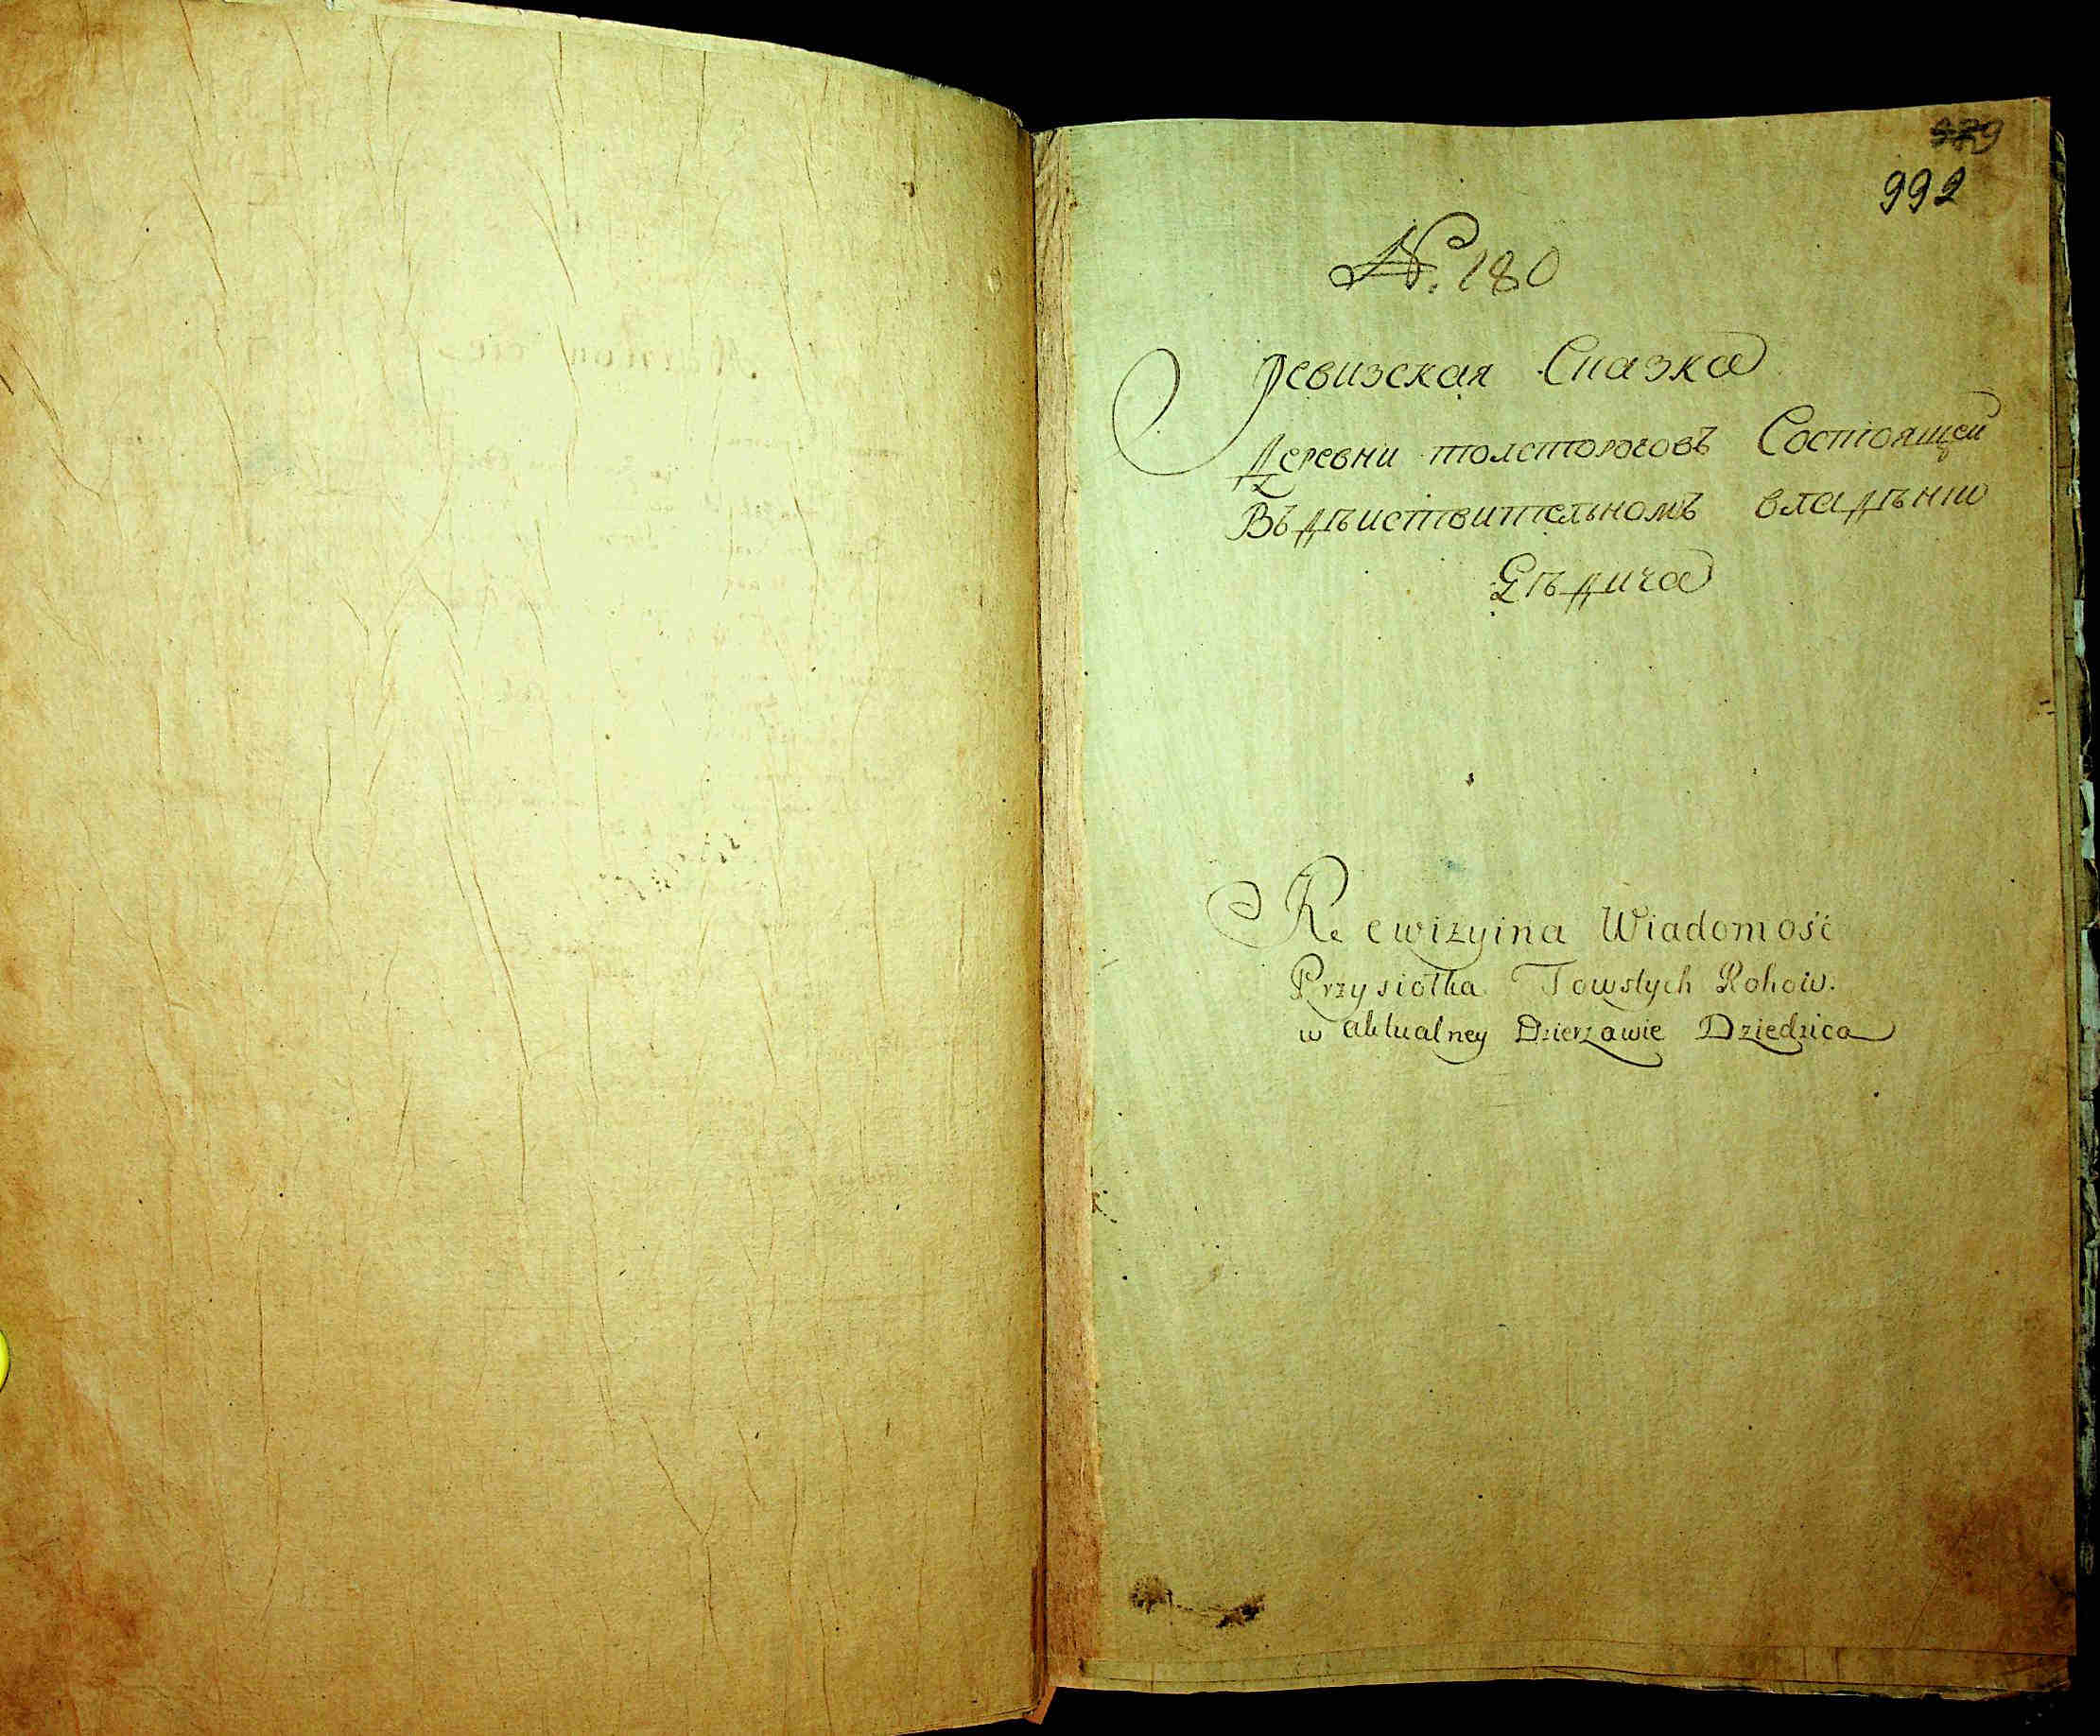 992
№. 180
Ревизская Сказка
Деревни толсторогов Состоящей
Въ дѣиствительномъ владѣнïи
Дѣдича
Rewizyina Wiadomość
Przysiołka Towstych Rohow.
w aktualney Dzierzawie Dziedzica